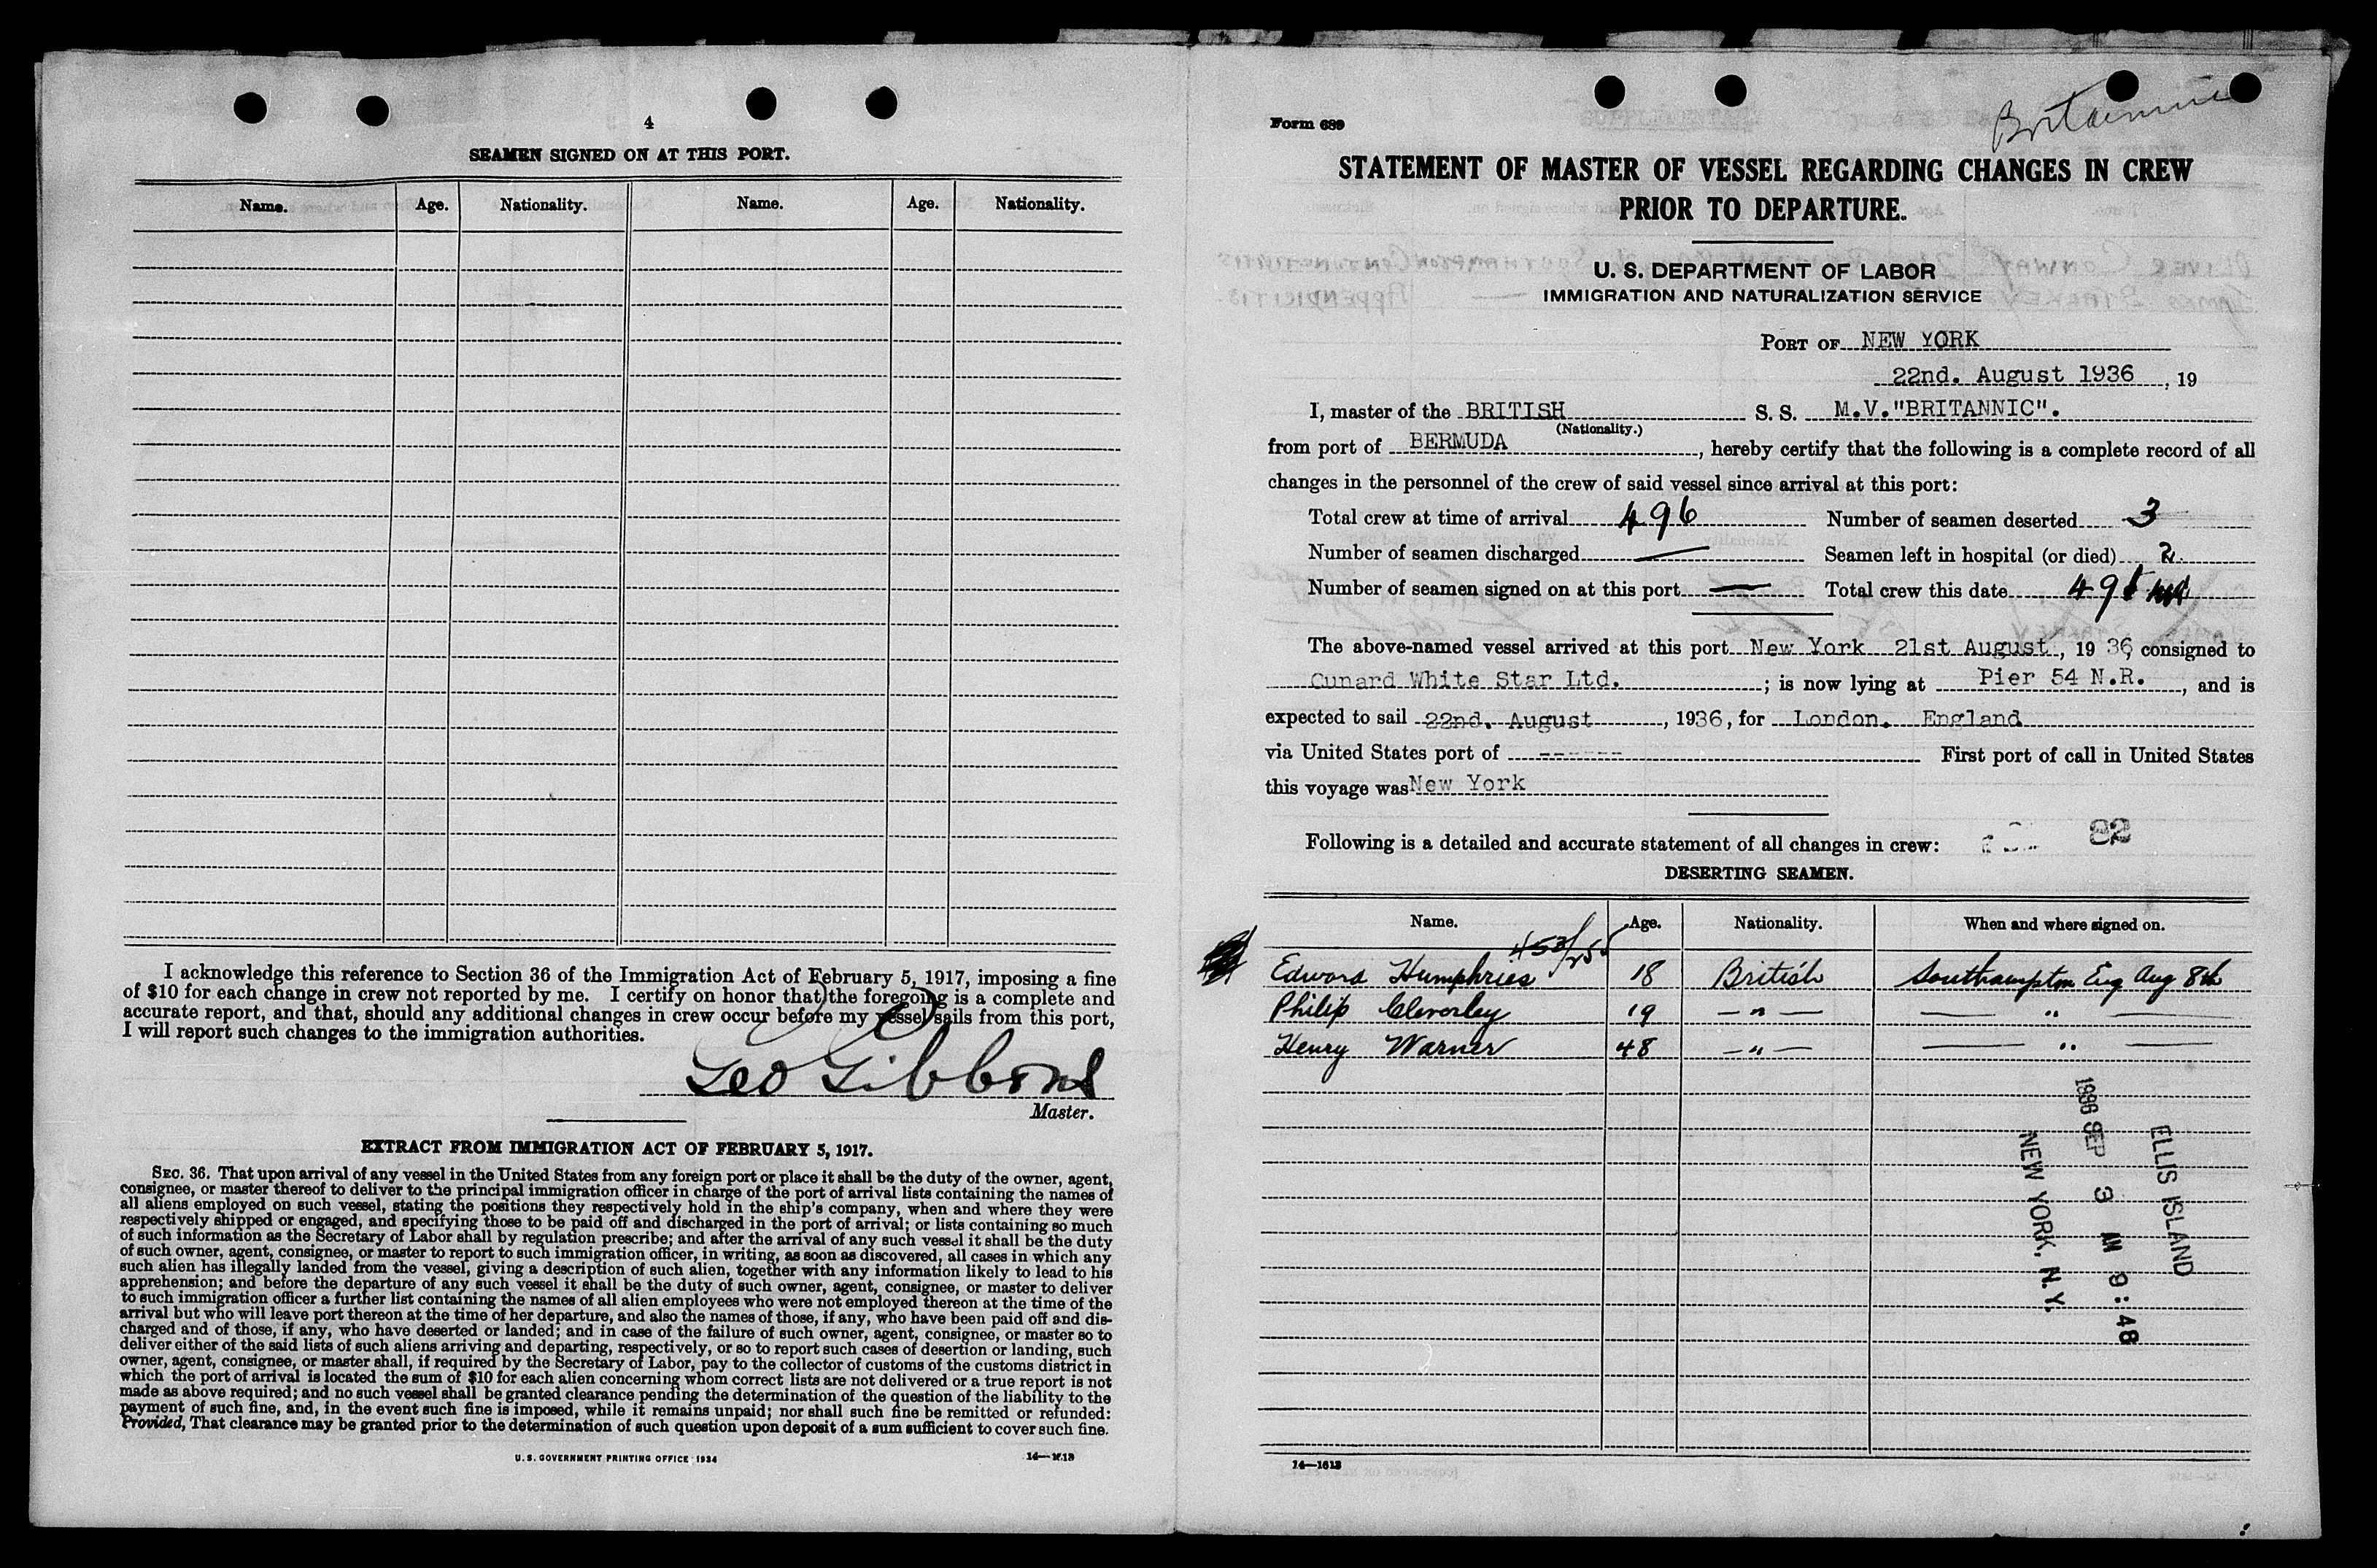 4
SEAMEN SIGNED ON AT THIS PORT.
Name. Age. Nationality. Name. Age. Nationality.
I acknowledge this reference to Section 36 of the Immigration Act of February 5, 1917, imposing a fine
of $10 for each change in crew not reported by me. I certify on honor that the foregoing is a complete and
accurate report, and that, should any additional changes in crew occur before my vessel sails from this port,
I will report such changes to the immigration authorities.
Geo Gibbons
Master.
EXTRACT FROM IMMIGRATION ACT OF FEBRUARY 5, 1917.
SEC. 36. That upon arrival of any vessel in the United States from any foreign port or place it shall be the duty of the owner, agent,
consignee, or master thereof to deliver to the principal immigration officer in charge of the port of arrival lists containing the names of
all aliens employed on such vessel, stating the positions they respectively hold in the ship's company, when and where they were
respectively shipped or engaged, and specifying those to be paid off and discharged in the port of arrival; or lists containing so much
of such information as the Secretary of Labor shall by regulation prescribe; and after the arrival of any such vessel it shall be the duty
of such owner, agent, consignee, or master to report to such immigration officer, in writing, as soon as discovered, all cases in which any
such alien has illegally landed from the vessel, giving a description of such alien, together with any information likely to lead to his
apprehension; and before the departure of any such vessel it shall be the duty of such owner, agent, consignee, or master to deliver
to such immigration officer a further list containing the names of all alien employees who were not employed thereon at the time of the
arrival but who will leave port thereon at the time of her departure, and also the names of those, if any, who have been paid off and dis-
charged and of those, if any, who have deserted or landed; and in case of the failure of such owner, agent, consignee, or master so to
deliver either of the said lists of such aliens arriving and departing, respectively, or so to report such cases of desertion or landing, such
owner, agent, consignee, or master shall, if required by the Secretary of Labor, pay to the collector of customs of the customs district in
which the port of arrival is located the sum of $10 for each alien concerning whom correct lists are not delivered or a true report is not
made as above required; and no such vessel shall be granted clearance pending the determination of the question of the liability to the
payment of such fine, and, in the event such fine is imposed, while it remains unpaid; nor shall such fine be remitted or refunded:
Provided, That clearance may be granted prior to the determination of such question upon deposit of a sum sufficient to cover such fine.
U. S. GOVERNMENT PRINTING OFFICE 1934 14—1613
Form 689
Britannic
STATEMENT OF MASTER OF VESSEL REGARDING CHANGES IN CREW
PRIOR TO DEPARTURE.
U. S. DEPARTMENT OF LABOR
IMMIGRATION AND NATURALIZATION SERVICE
PORT OF NEW YORK
22nd. August 1936, 19
I, master of the BRITISH S. S. M.V."BRITANNIC".
(Nationality.)
from port of BERMUDA, hereby certify that the following is a complete record of all
changes in the personnel of the crew of said vessel since arrival at this port:
Total crew at time of arrival 496 Number of seamen deserted 3
Number of seamen discharged — Seamen left in hospital (or died) 2
Number of seamen signed on at this port — Total crew this date 491
The above-named vessel arrived at this port New York 21st August, 1936, consigned to
Cunard White Star Ltd.; is now lying at Pier 54 N.R., and is
expected to sail 22nd. August, 1936, for London. England
via United States port of ------ First port of call in United States
this voyage was New York
Following is a detailed and accurate statement of all changes in crew: 82
DESERTING SEAMEN.
Name. Age. Nationality. When and where signed on.
Edward Humphries 18 British Southampton Eng Aug 8th
Philip Cleverley 19 —"— — " —
Henry Warner 48 —"— — " —
ELLIS ISLAND
1936 SEP 3 AM 9:48
NEW YORK, N.Y.
14—1613